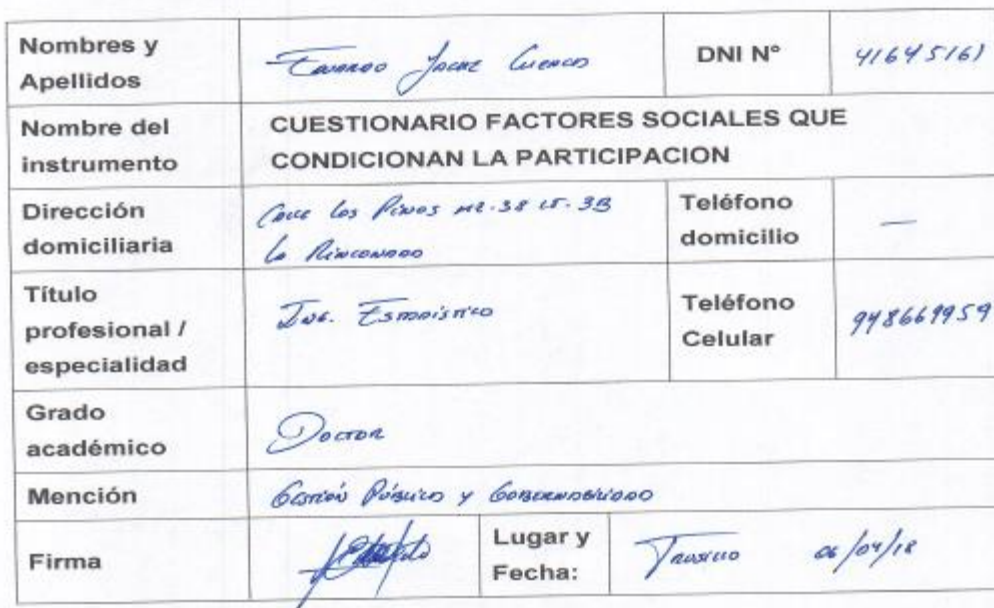 Nombres y Apellidos Eduardo Javier Cuenca DNI N° 41645161
Nombre del instrumento CUESTIONARIO FACTORES SOCIALES QUE
CONDICIONAN LA PARTICIPACION
Dirección domiciliaria Calle Los Pinos MZ. 38 LT. 3B
La Rinconada
Teléfono domicilio —
Título profesional / especialidad Ing. Estadístico
Teléfono Celular 948669959
Grado académico Doctor
Mención Gestión Pública y Gobernabilidad
Firma
Lugar y Fecha: Trujillo 06/04/18